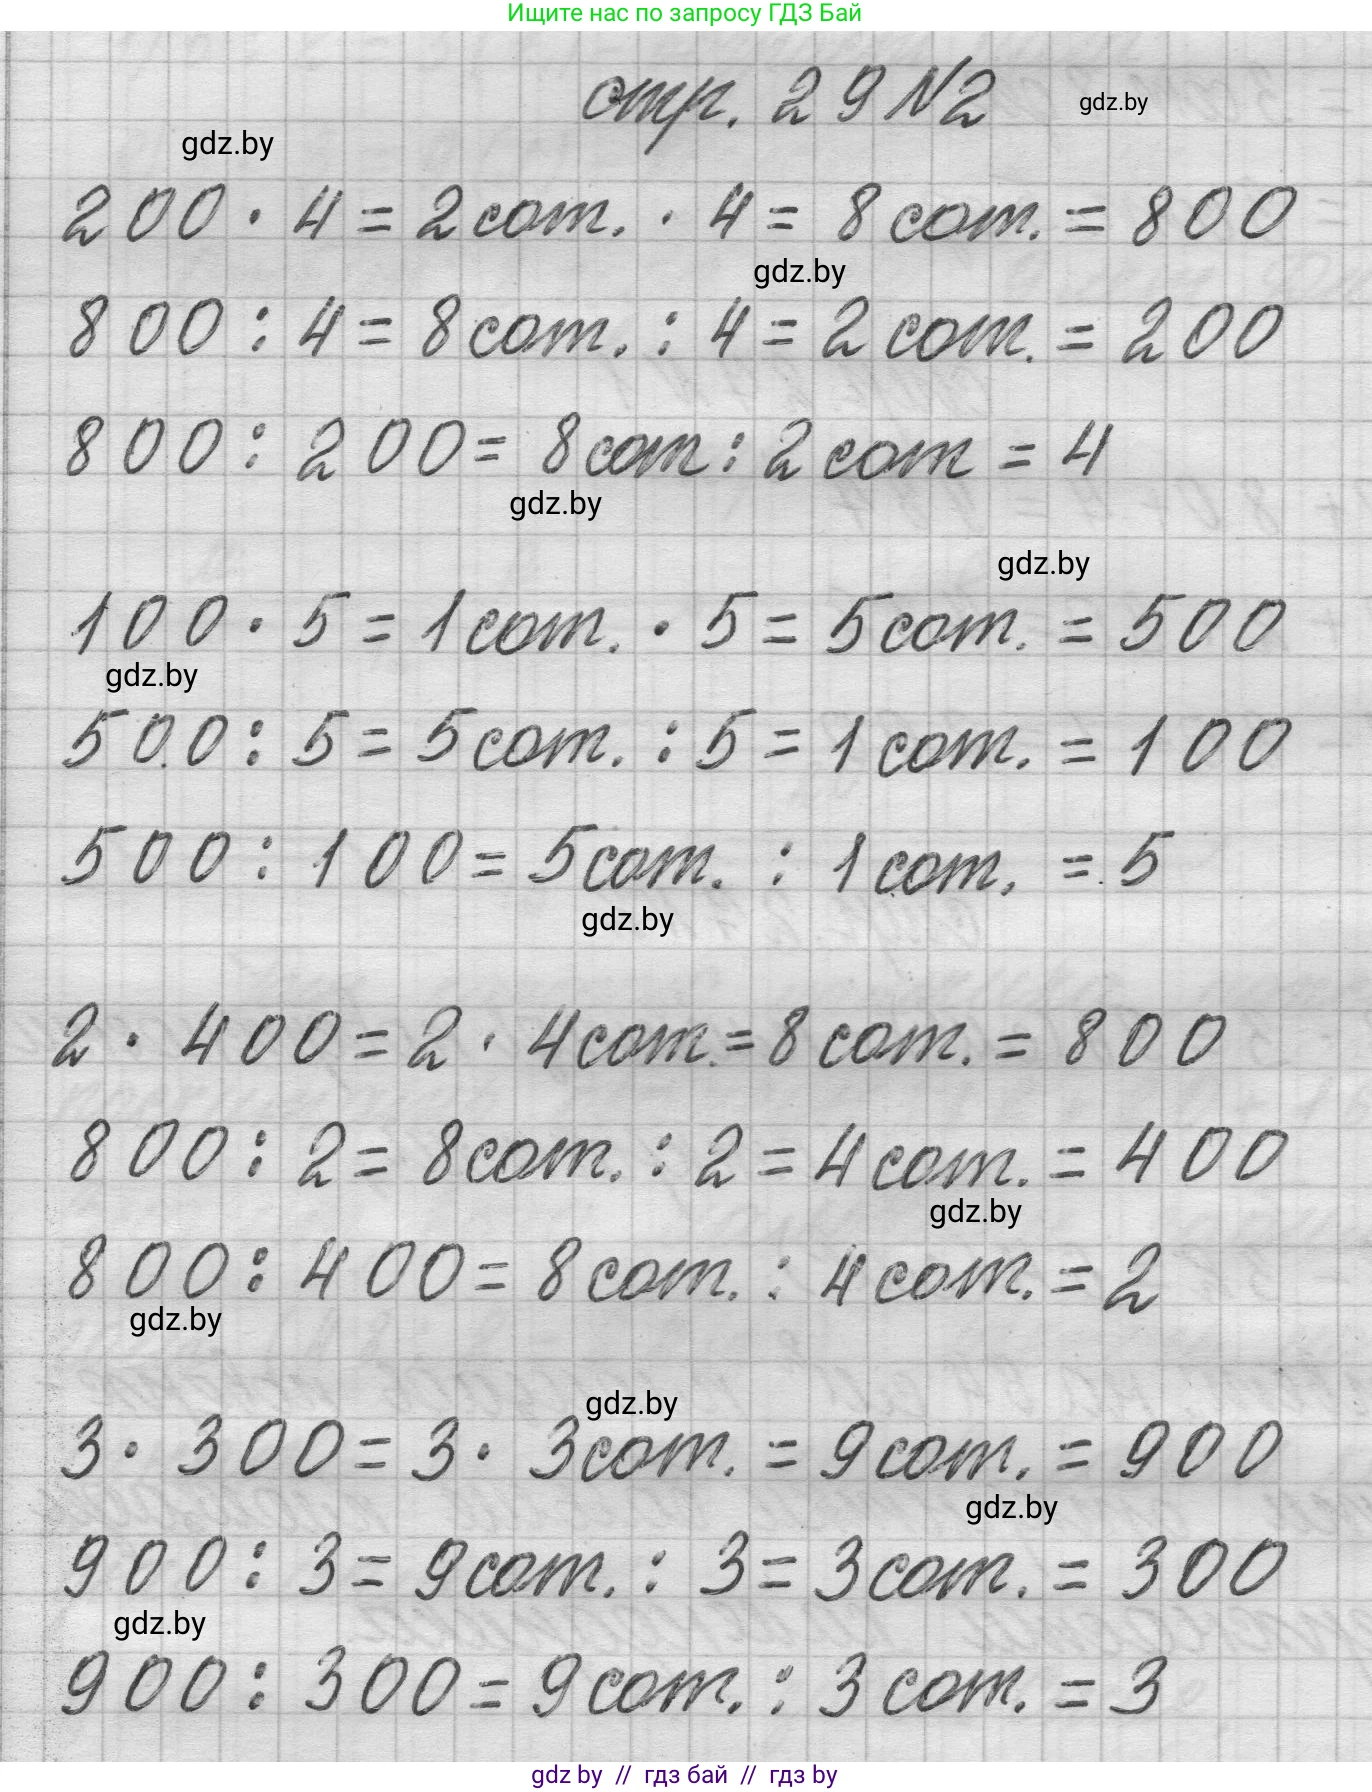 Ищите нас по запросу ГДЗ Бай
стр. 29 №2
gdz.by
gdz.by
200 · 4 = 2 сот. · 4 = 8 сот. = 800
gdz.by
800 : 4 = 8 сот. : 4 = 2 сот. = 200
800 : 200 = 8 сот : 2 сот = 4
gdz.by
gdz.by
100 · 5 = 1 сот. · 5 = 5 сот. = 500
gdz.by
500 : 5 = 5 сот. : 5 = 1 сот. = 100
500 : 100 = 5 сот. : 1 сот. = 5
gdz.by
2 · 400 = 2 · 4 сот. = 8 сот. = 800
800 : 2 = 8 сот. : 2 = 4 сот. = 400
gdz.by
800 : 400 = 8 сот. : 4 сот. = 2
gdz.by
gdz.by
3 · 300 = 3 · 3 сот. = 9 сот. = 900
gdz.by
900 : 3 = 9 сот. : 3 = 3 сот. = 300
gdz.by
900 : 300 = 9 сот. : 3 сот. = 3
gdz by // гдз бай // гдз by